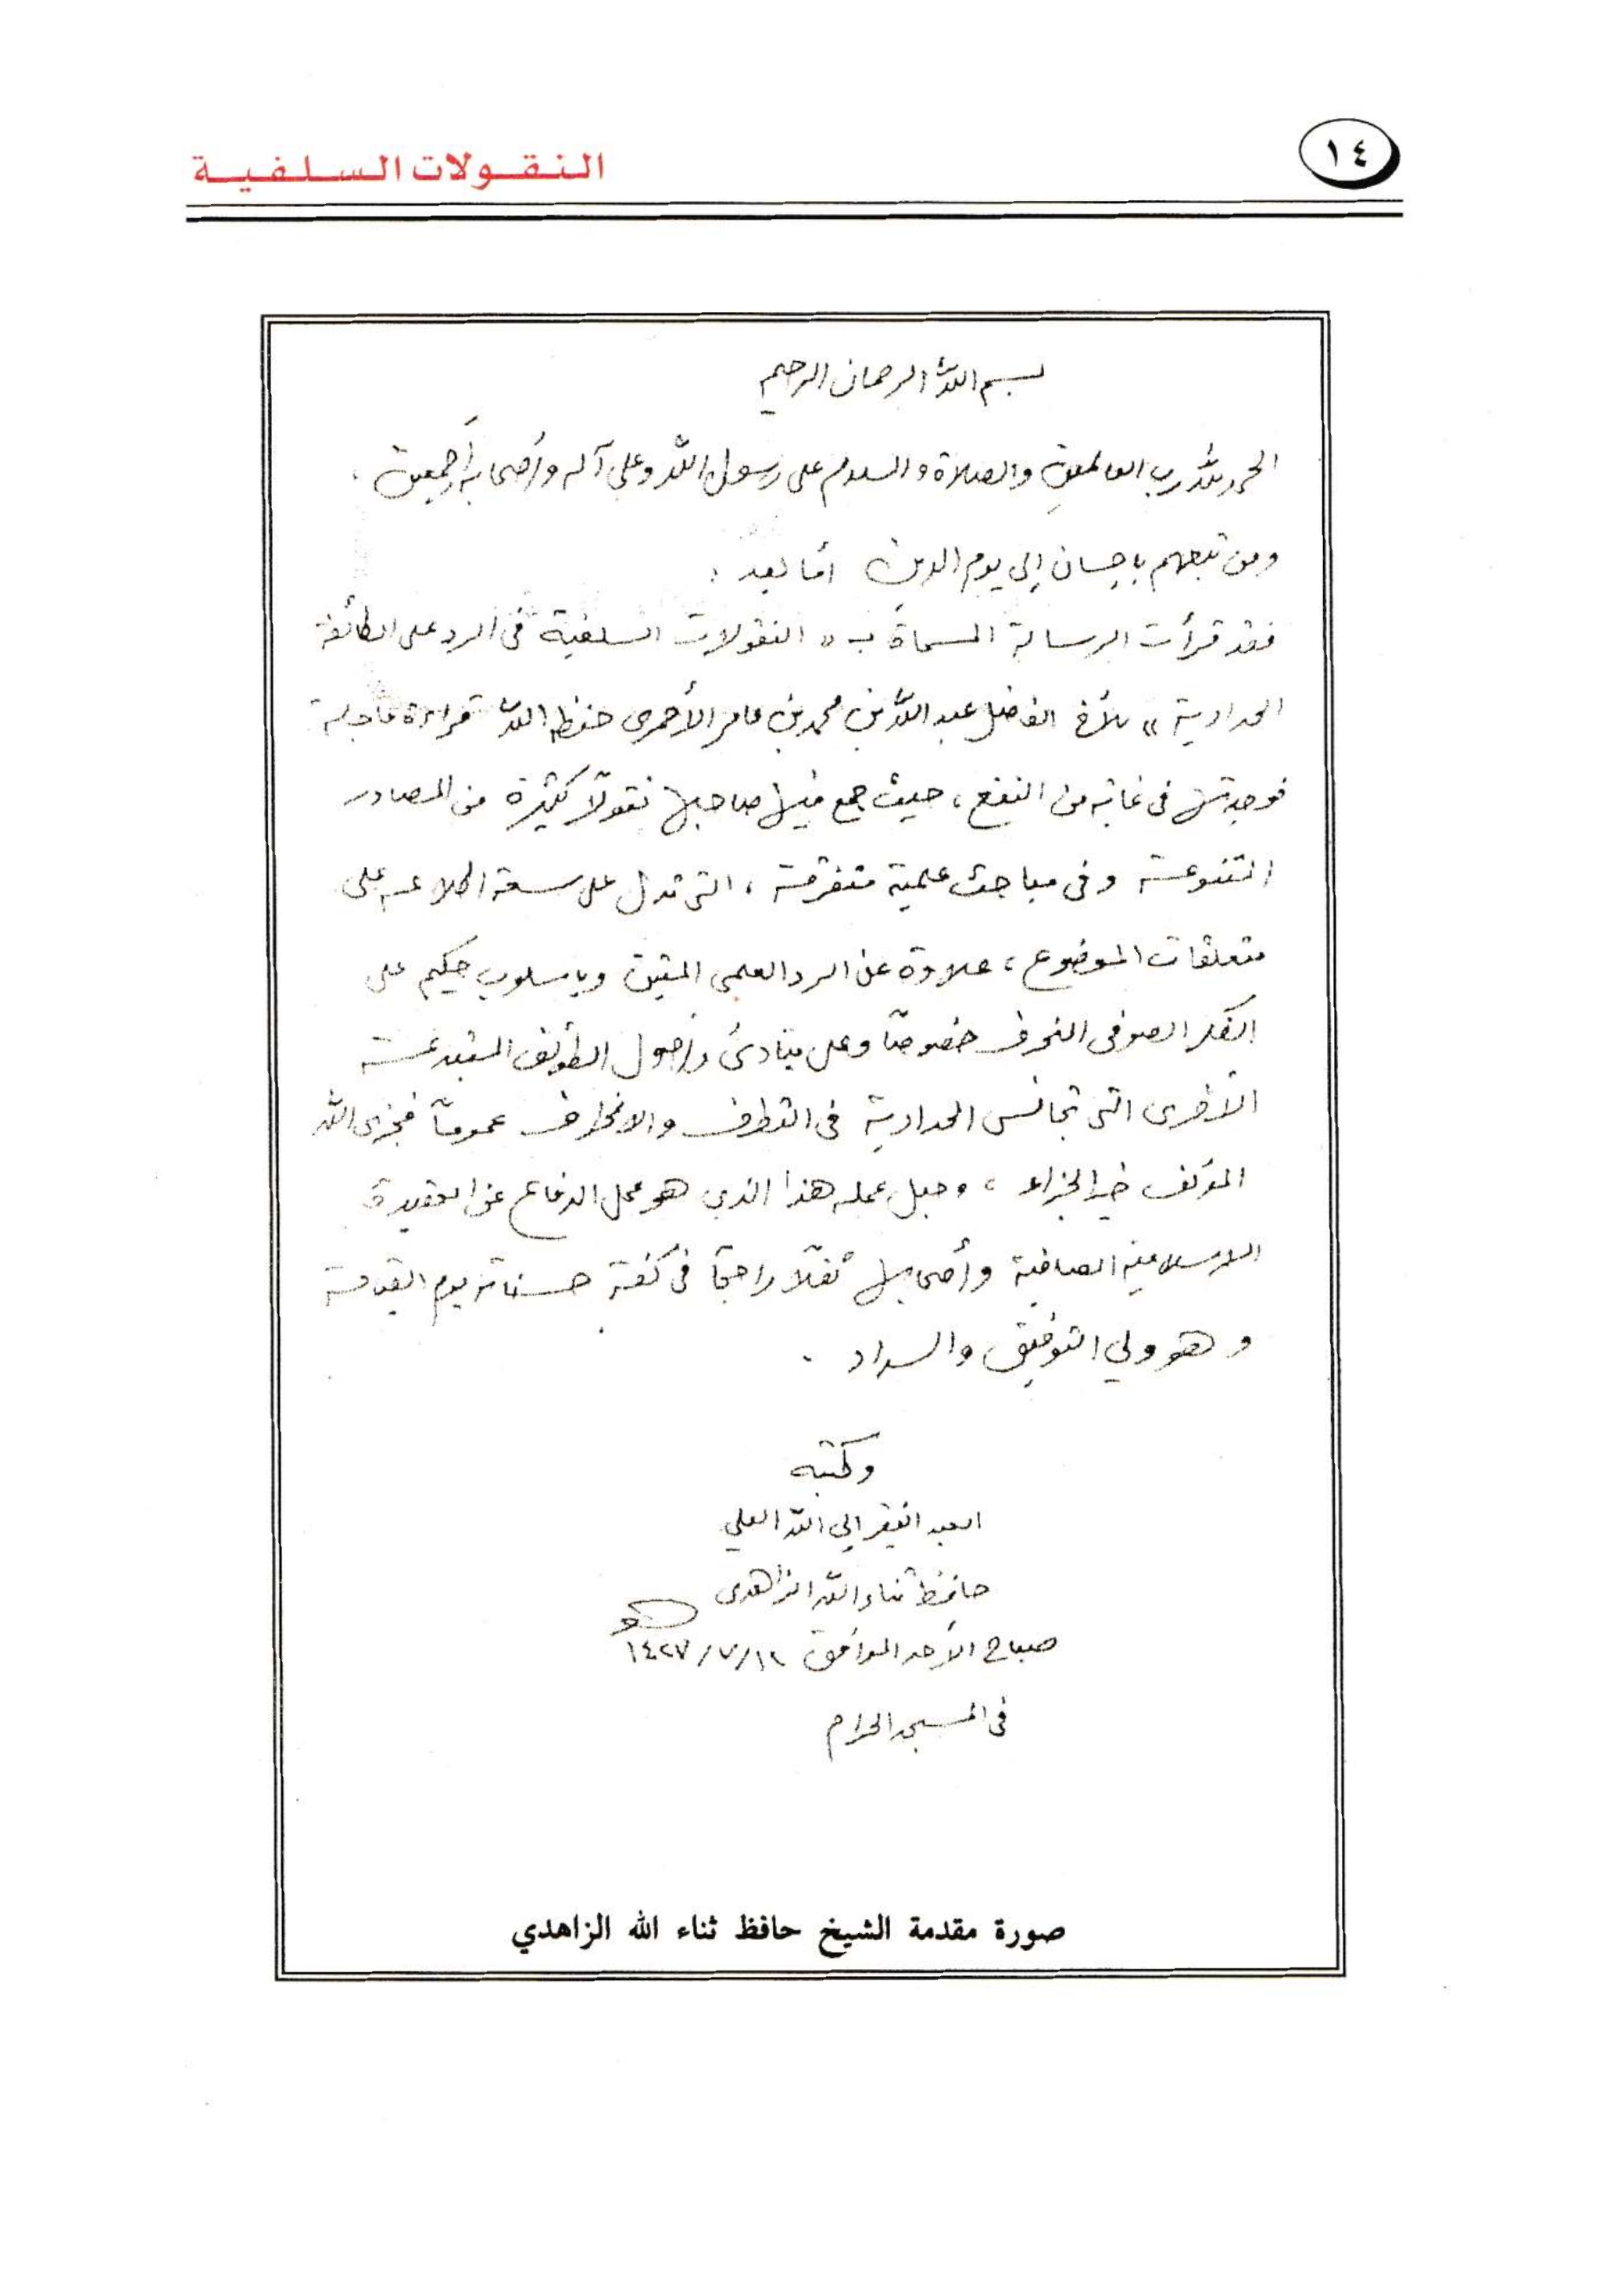 ١٤
النقولات السلفية
بسم الله الرحمان الرحيم
الحمد لله رب العالمين والصلاة والسلام على رسول الله وعلى آله وأصحابه أجمعين .
ومن تبعهم بإحسان إلى يوم الدين أما بعد :
فقد قرأت الرسالة المسماة بـ « النقولات السلفية في الرد على الطائفة
الحدادية » للأخ الفاضل عبد الله بن محمد بن عامر الأحمري حفظه الله قراءة عاجلة
فوجدتها في غاية من النفع ، حيث جمع فيها صاحبها نقولاً كثيرة من المصادر
المتنوعة وفي مباحث علمية متفرقة ، التي تدل على سعة اطلاعه على
متعلقات الموضوع ، علاوة عن الرد العلمي المتين وبأسلوب حكيم على
الفكر الصوفي المنحرف خصوصًا وعلى مبادئ وأصول الطوائف المبتدعة
الأخرى التي تجانس الحدادية في التطرف والانحراف عمومًا فجزى الله
المؤلف خير الجزاء ، وجعل عمله هذا الذي هو محل الدفاع عن العقيدة
الإسلامية الصافية وأصحابها ثقلاً راجحًا في كفة حسناته يوم القيامة
وهو ولي التوفيق والسداد .
وكتبه
العبد الفقير إلى الله العلي
حافظ ثناء الله الزاهدي
صباح الأحد الموافق ١٢/٧/١٤٢٧
في المسجد الحرام
صورة مقدمة الشيخ حافظ ثناء الله الزاهدي